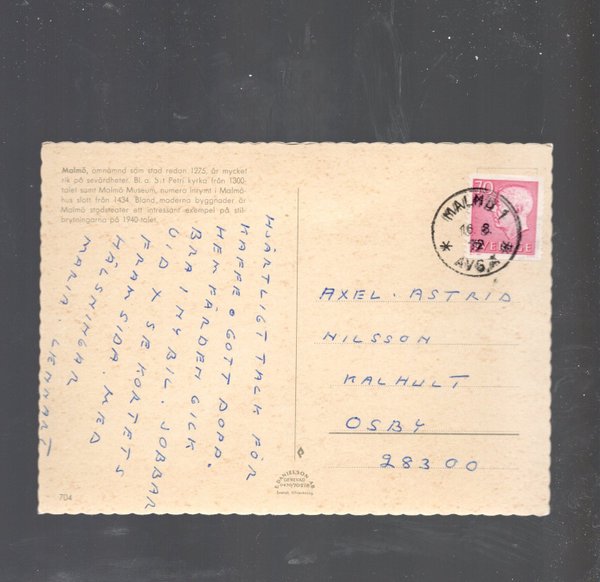 Malmö, omnämnd som stad redan 1275, är mycket
rik på sevärdheter. Bl. a. S:t Petri kyrka från 1300-
talet samt Malmö Museum, numera inrymt i Malmö-
hus slott från 1434. Bland moderna byggnader är
Malmö stadsteater ett intressant exempel på stil-
brytningarna på 1940-talet.
HJÄRTLIGT TACK FÖR
KAFFE O GOTT DOPP.
HEMFÄRDEN GICK
BRA I NY BIL. JOBBAR
VID X SE KORTETS
FRAMSIDA. MED
HÄLSNINGAR
MARIA. LENNART
70
SVERIGE
MALMÖ 1
16 8
72
AVG.
AXEL. ASTRID
NILSSON
KALHULT
OSBY
28300
E. DANIELSON AB
GENEVAD
Svensk tillverkning
704